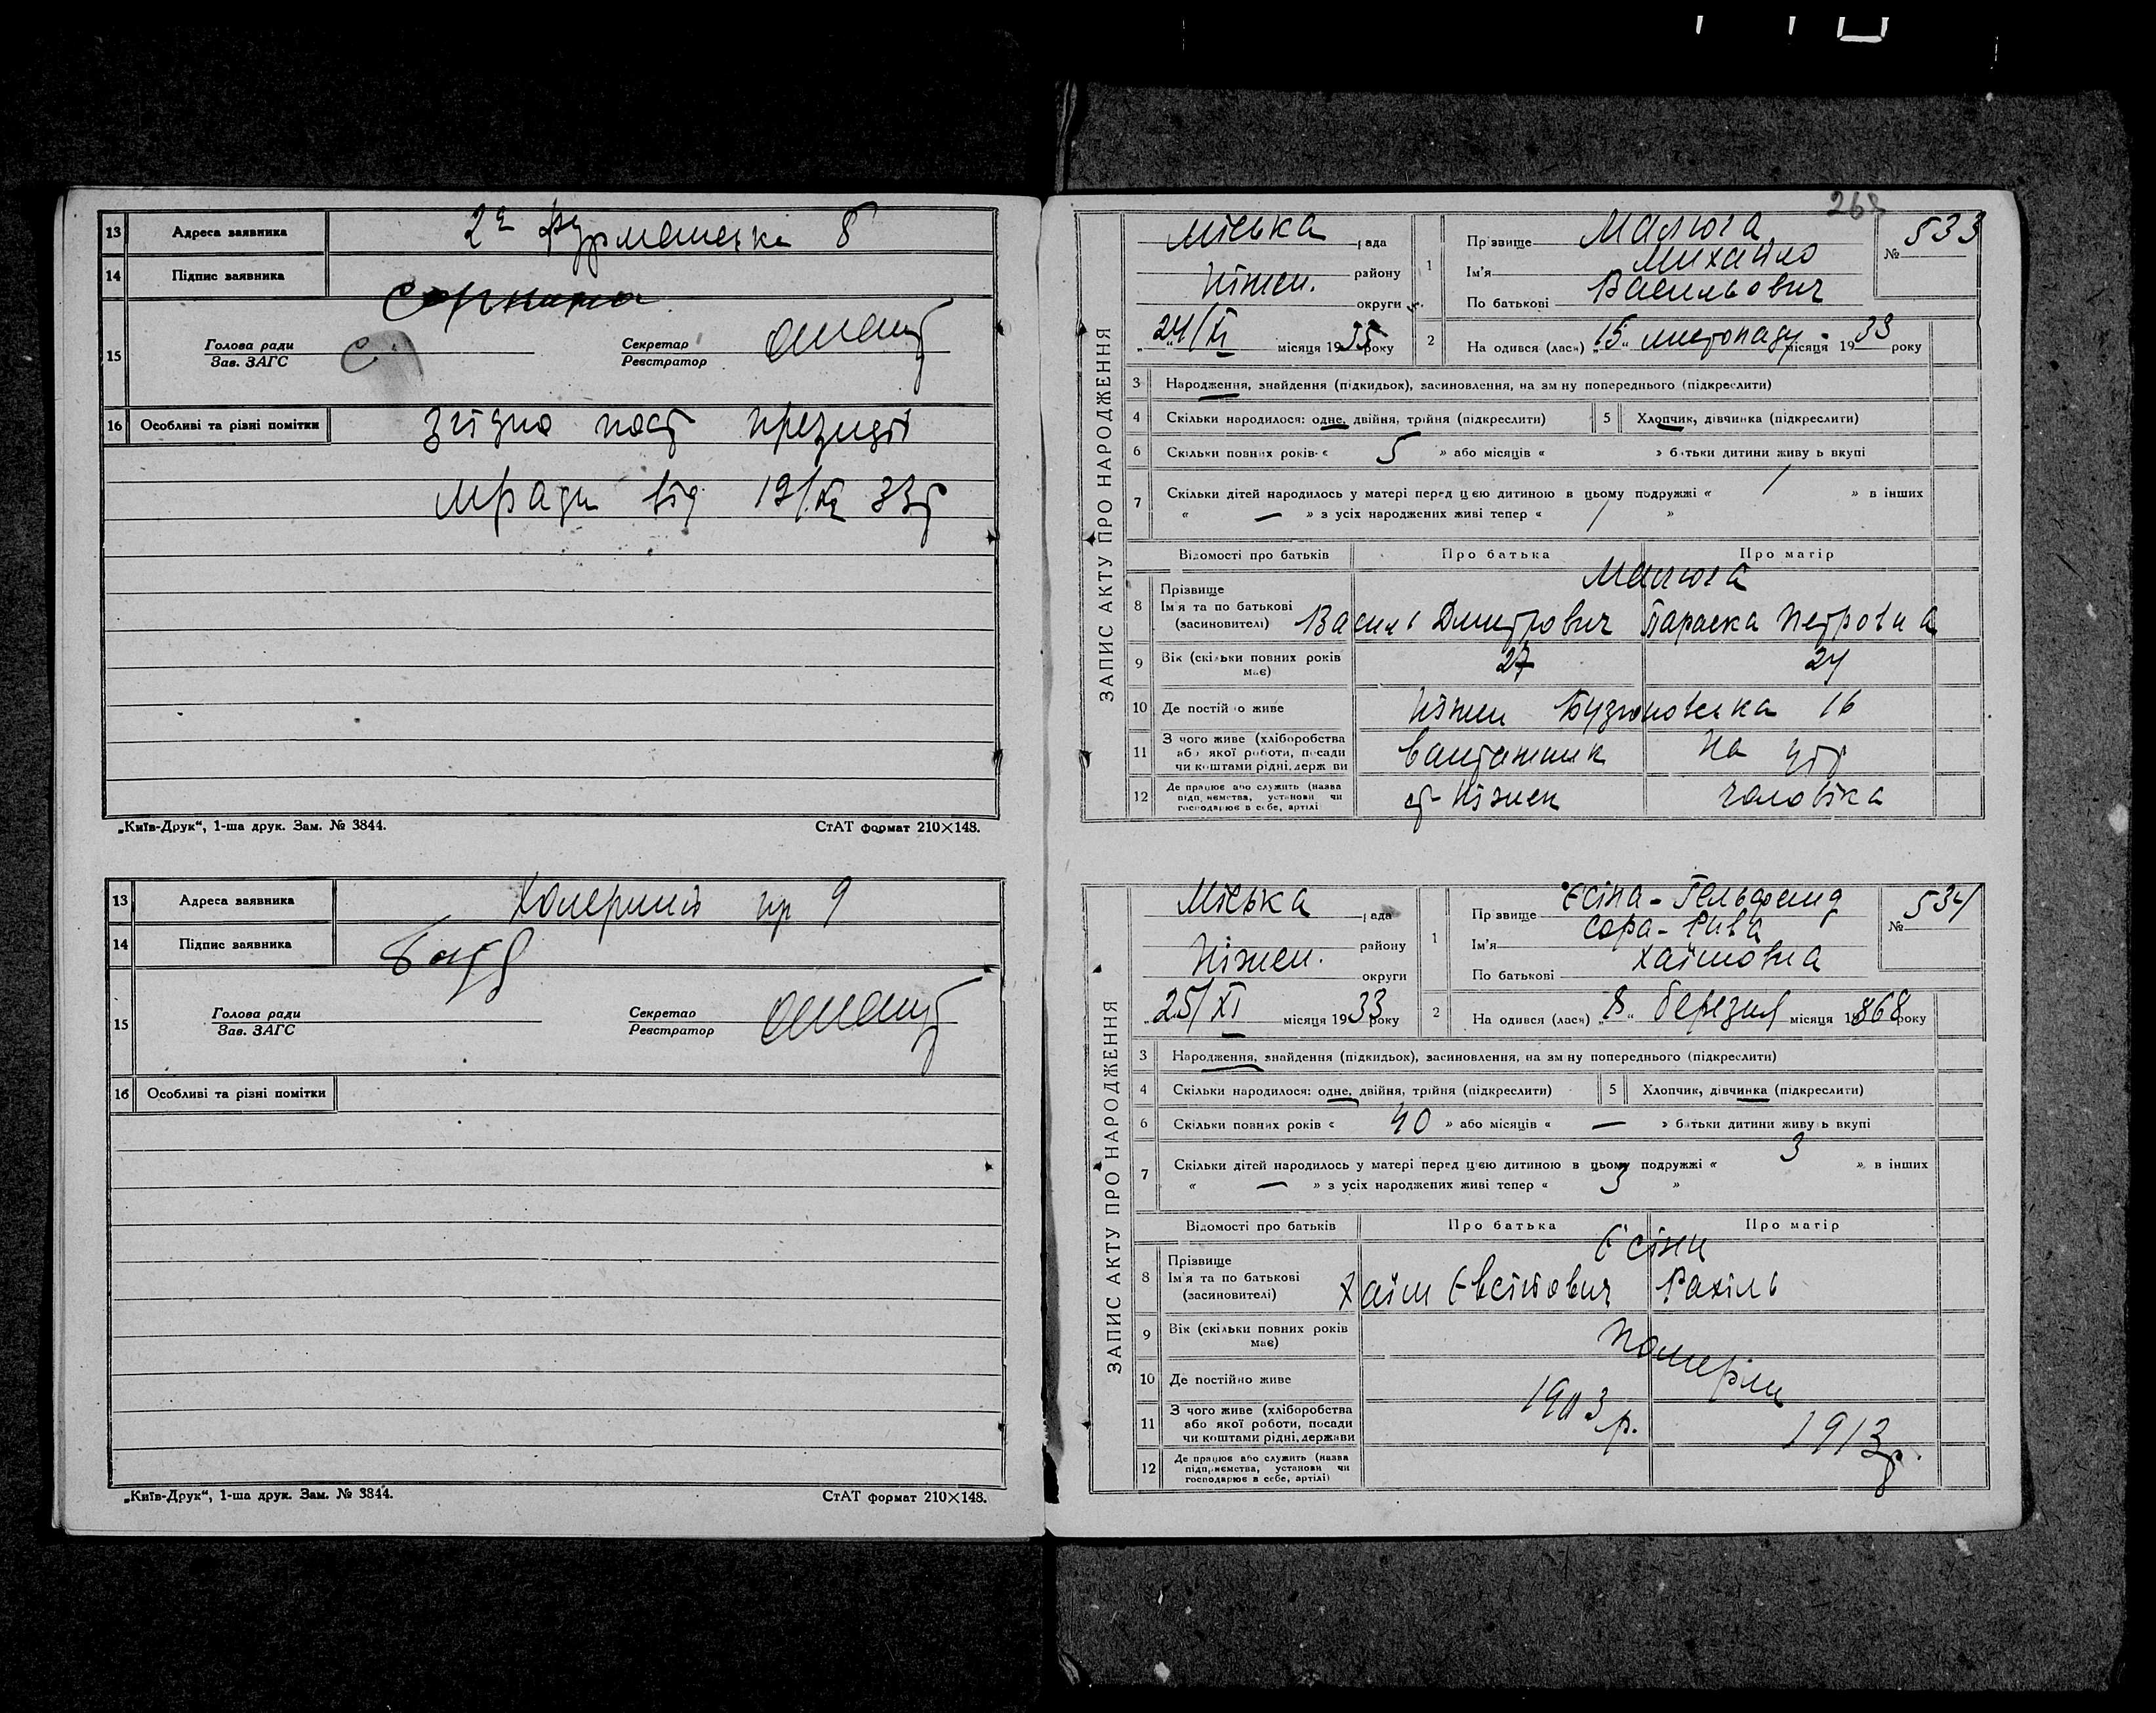 13 Адреса заявника 8
14 Підпис заявника
15 Голова ради Секретар
Зав. ЗАГС Реєстратор
16 Особливі та різні помітки згідно пост президії
мради від 19/XI 33р
„Київ-Друк“, 1-ша друк. Зам. № 3844. СтАТ формат 210×148.
13 Адреса заявника пр 9
14 Підпис заявника
15 Голова ради Секретар
Зав. ЗАГС Реєстратор
16 Особливі та різні помітки
„Київ-Друк“, 1-ша друк. Зам. № 3844. СтАТ формат 210×148.
268
ЗАПИС АКТУ ПРО НАРОДЖЕННЯ
Міська рада
Ніжен. району
округи
„24/XI місяця 1933 року
1 Прізвище Малюга
Ім'я Михайло
По батькові Васильович
№ 533
2 На одився (лася) „15“ листопаду місяця 1933 року
3 Народження, знайдення (підкидьок), засиновлення, на зм ну попереднього (підкреслити)
4 Скільки народилося: одне, двійня, трійня (підкреслити) 5 Хлопчик, дівчинка (підкреслити)
6 Скільки повних років « 5 » або місяців « » батьки дитини живуть вкупі
7 Скільки дітей народилось у матері перед цією дитиною в цьому подружжі « 1 » в інших
« — » з усіх народжених живі тепер « 1 »
Відомості про батьків Про батька Про матір
8 Прізвище Малюга
Ім'я та по батькові Василь Дмитрович Параска Петровна
(засиновителі)
9 Вік (скільки повних років має) 27 24
10 Де постійно живе Ніжен 16
11 З чого живе (хліборобства або якої роботи, посади чи коштами рідні, держави вантажник на утр
12 Де працює або служить (назва підприємства, установи чи господарює в себе, артілі) ст-Ніжен чоловіка
ЗАПИС АКТУ ПРО НАРОДЖЕННЯ
Міська рада
Ніжен. району
округи
„25/XI місяця 1933 року
1 Прізвище Єсіна-Гельфанд
Ім'я Сора-Рива
По батькові Хаїмовна
№ 534
2 На одився (лася) „8“ березня місяця 1868 року
3 Народження, знайдення (підкидьок), засиновлення, на зм ну попереднього (підкреслити)
4 Скільки народилося: одне, двійня, трійня (підкреслити) 5 Хлопчик, дівчинка (підкреслити)
6 Скільки повних років « 40 » або місяців « — » батьки дитини живуть вкупі
7 Скільки дітей народилось у матері перед цією дитиною в цьому подружжі « 3 » в інших
« — » з усіх народжених живі тепер « 3 »
Відомості про батьків Про батька Про матір
8 Прізвище Єсіни
Ім'я та по батькові Хаїм Рахіль
(засиновителі)
9 Вік (скільки повних років має) померли
10 Де постійно живе
11 З чого живе (хліборобства або якої роботи, посади чи коштами рідні, держави 1903 р. 1913 р.
12 Де працює або служить (назва підприємства, установи чи господарює в себе, артілі)